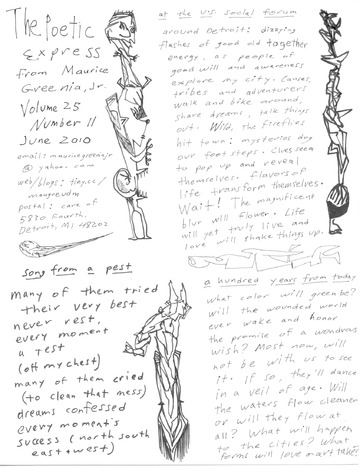 The Poetic
Express
from Maurice
Greenia, Jr.
Volume 25
Number 11
June 2010
email: mauricegreeniajr
@ yahoo.com
web/blogs: tiny.cc/
maugrevold
postal: care of
5920 Fourth.
Detroit, MI 48202
song from a pest
many of them tried
their very best
never rest,
every moment
a test
(off my chest)
many of them cried
(to clean that mess)
dreams confessed
every moment's
success (north south
east + west)
at the U.S. social forum
around Detroit: dizzying
flashes of good old together
energy, as people of
good will and awareness
explore my city. Causes,
tribes and adventurers
walk and bike around,
share dreams, talk things
out. Wild, the fireflies
hit town: mysteries dog
our foot steps. Clues seem
to pop up and reveal
themselves. Flavors of
life transform themselves.
Wait! The magnificent
blur will flower. Life
will yet truly live and
love will shake things up.
a hundred years from today
what color will green be?
will the wounded world
ever wake and honor
the promise of a wondrous
wish? Most now, will
not be with us to see
it. if so, they'll dance
in a veil of age. Will
the waters flow cleaner
or will they flow at
all? What will happen
to the cities? What
forms will love + art take?